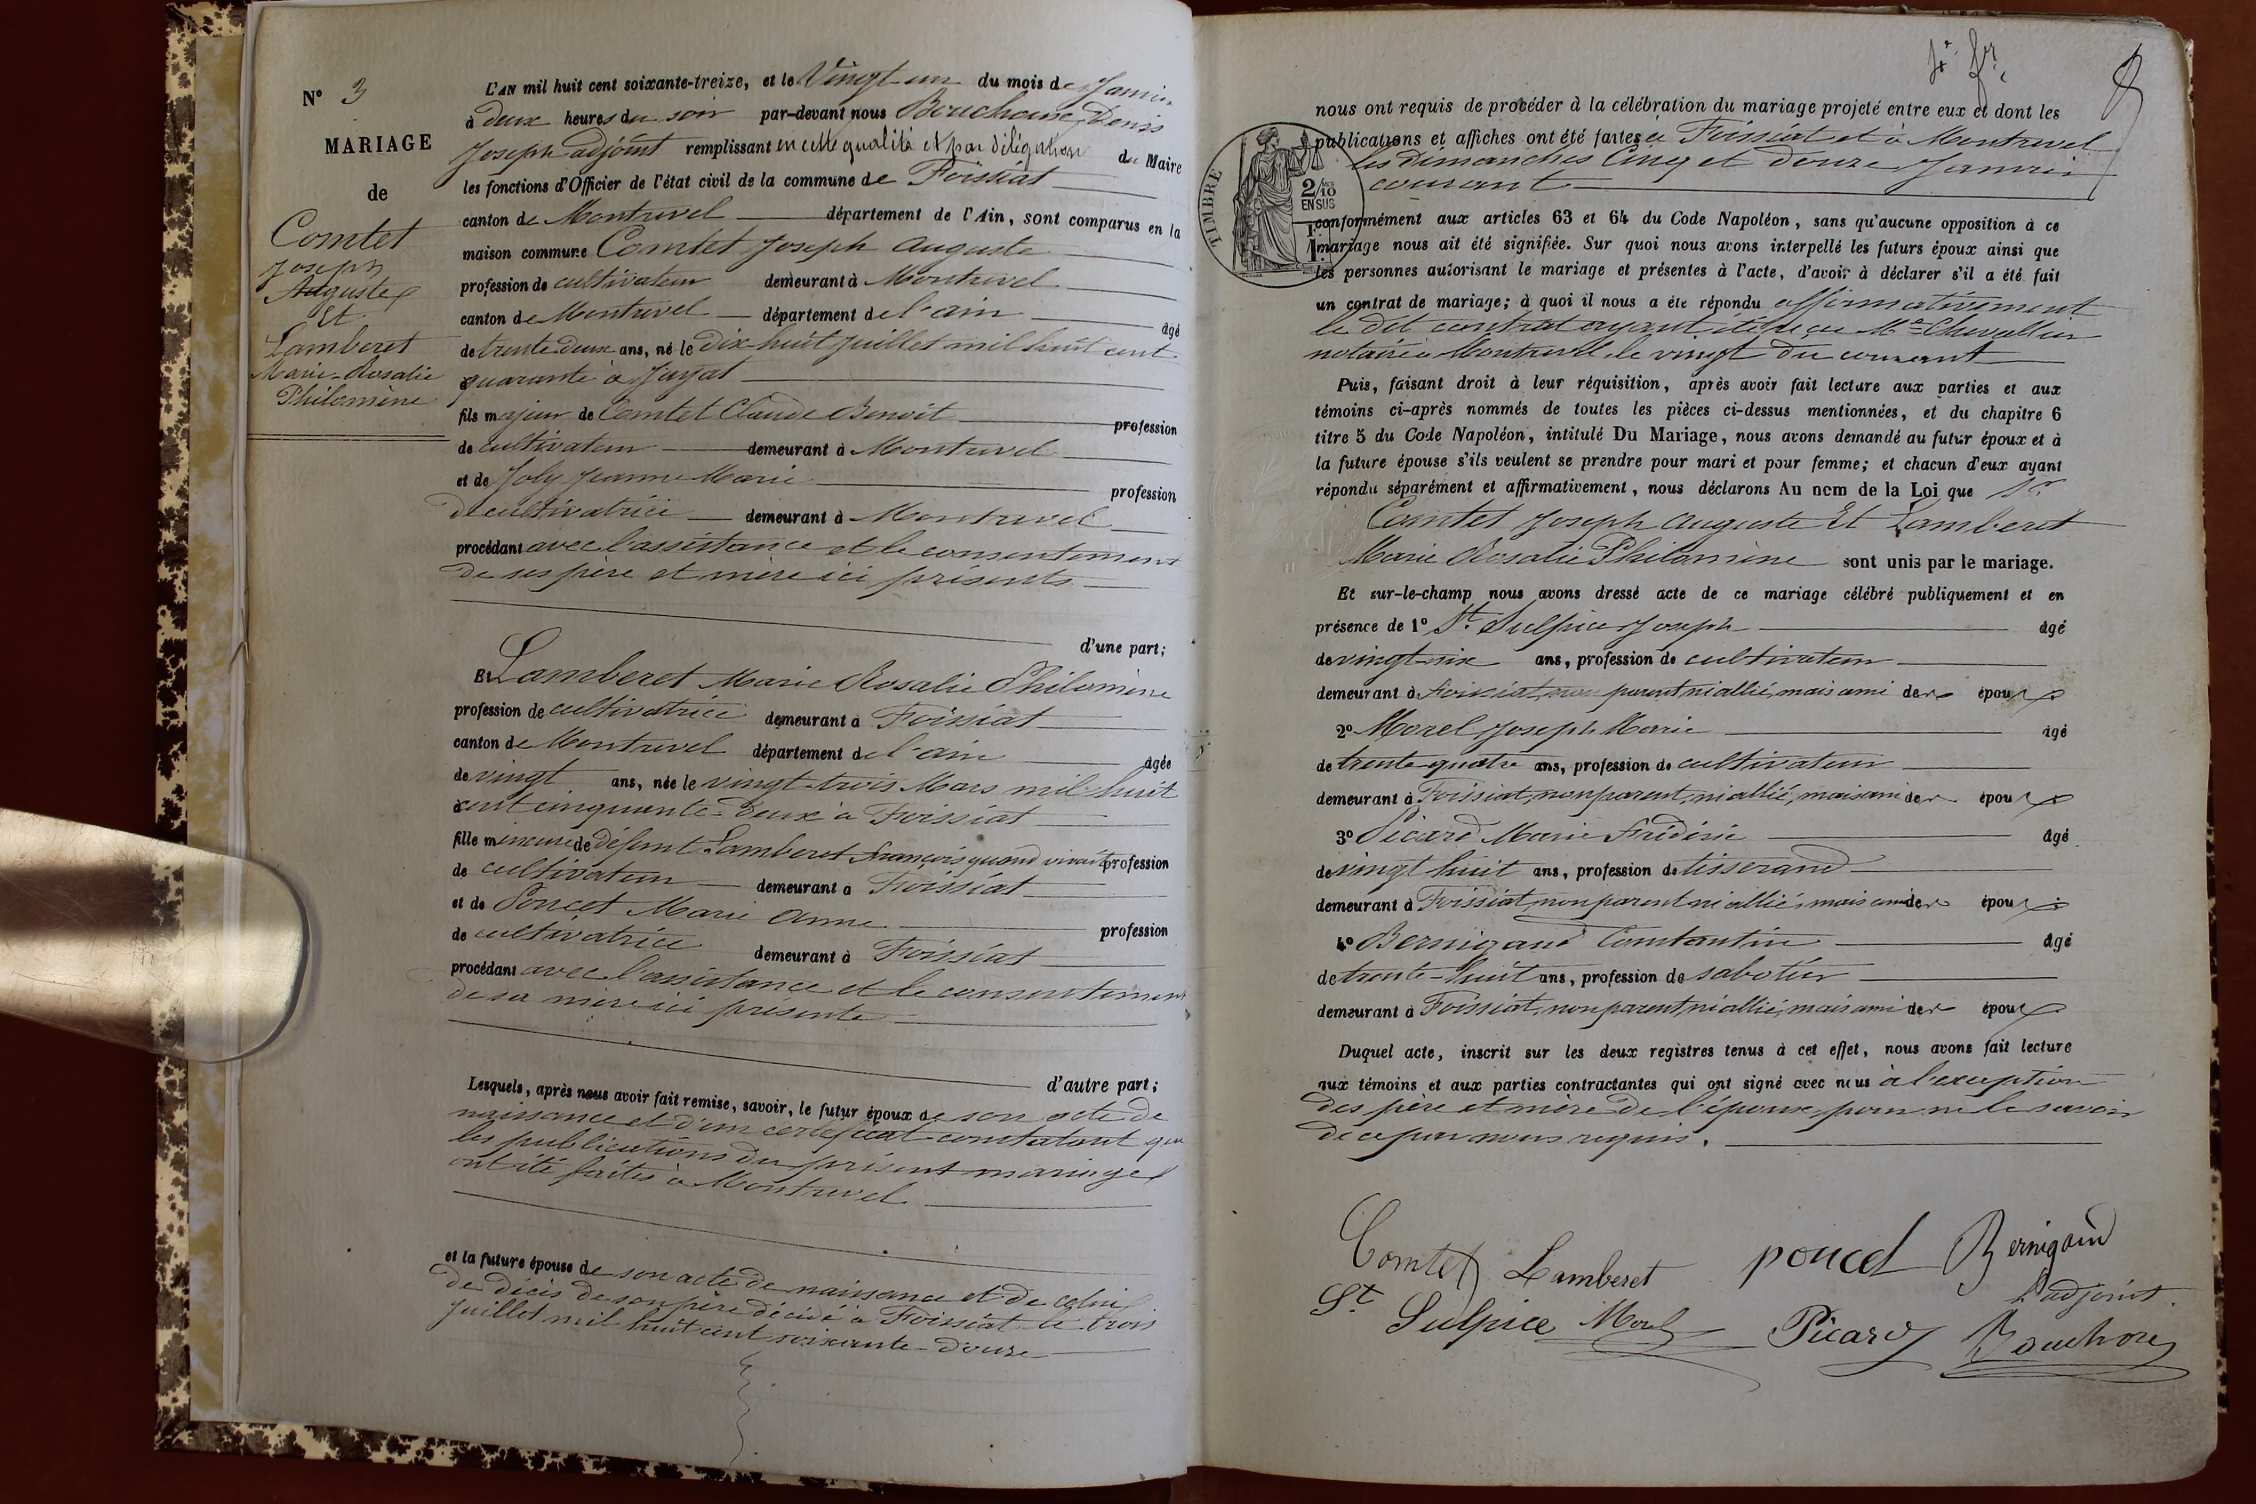 N° 3
MARIAGE
de
Comtet
Joseph
Auguste
Et
Lamberet
Marie-Rosalie
Philomène
L'AN mil huit cent soixante-treize, et le Vingt-un du mois de Janvier
à deux heures du soir par-devant nous Bouchoux, Denis
Joseph adjoint remplissant en cette qualité et par délégation du Maire
les fonctions d'Officier de l'état civil de la commune de Foissiat
canton de Montrevel département de l'Ain, sont comparus en la
maison commune Comtet Joseph Auguste
profession de cultivateur demeurant à Montrevel
canton de Montrevel département de l'ain âgé
de trente deux ans, né le dix huit juillet mil huit cent
quarante à Jayat
fils majeur de Comtet Claude Benoit profession
de cultivateur demeurant à Montrevel
et de Joly Jeanne Marie profession
de cultivatrice demeurant à Montrevel
procédant avec l'assistance et le consentement
de ses père et mère ici présents
d'une part;
Et Lamberet Marie Rosalie Philomène
profession de cultivatrice demeurant à Foissiat
canton de Montrevel département de l'ain âgée
de vingt ans, née le vingt-trois Mars mil huit
cent cinquante-deux à Foissiat
fille mineure de défunt Lamberet François quand vivait profession
de cultivateur demeurant à Foissiat
et de Poncet Marie Anne profession
de cultivatrice demeurant à Foissiat
procédant avec l'assistance et le consentement
de sa mère ici présente
d'autre part;
Lesquels, après nous avoir fait remise, savoir, le futur époux de son acte de
naissance et d'un certificat constatant que
les publications du présent mariage
ont été faites à Montrevel
et la future épouse de son acte de naissance et de celui
de décès de son père décédé à Foissiat le trois
juillet mil huit cent soixante-douze
nous ont requis de procéder à la célébration du mariage projeté entre eux et dont les
publications et affiches ont été faites à Foissiat et à Montrevel
les Dimanches Cinq et douze Janvier
courant
TIMBRE
2/10
EN SUS
conformément aux articles 63 et 64 du Code Napoléon, sans qu'aucune opposition à ce
mariage nous ait été signifiée. Sur quoi nous avons interpellé les futurs époux ainsi que
les personnes autorisant le mariage et présentes à l'acte, d'avoir à déclarer s'il a été fait
un contrat de mariage; à quoi il nous a été répondu affirmativement
le dit contrat ayant été reçu Me Chevallier
notaire à Montrevel le vingt du courant
Puis, faisant droit à leur réquisition, après avoir fait lecture aux parties et aux
témoins ci-après nommés de toutes les pièces ci-dessus mentionnées, et du chapitre 6
titre 5 du Code Napoléon, intitulé Du Mariage, nous avons demandé au futur époux et à
la future épouse s'ils veulent se prendre pour mari et pour femme; et chacun d'eux ayant
répondu séparément et affirmativement, nous déclarons Au nom de la Loi que
Comtet Joseph Auguste Et Lamberet
Marie Rosalie Philomène sont unis par le mariage.
Et sur-le-champ nous avons dressé acte de ce mariage célébré publiquement et en
présence de 1° St. Sulpice Joseph âgé
de vingt-six ans, profession de cultivateur
demeurant à Foissiat, non parent, ni allié, mais ami des époux
2° Morel Joseph Marie âgé
de trente-quatre ans, profession de cultivateur
demeurant à Foissiat, non parent, ni allié, mais ami des époux
3° Picard Marie Frédéric âgé
de vingt huit ans, profession de tisserand
demeurant à Foissiat, non parent ni allié, mais ami des époux
4° Bernigaud Constantin âgé
de trente-huit ans, profession de sabotier
demeurant à Foissiat, non parent, ni allié, mais ami des époux
Duquel acte, inscrit sur les deux registres tenus à cet effet, nous avons fait lecture
aux témoins et aux parties contractantes qui ont signé avec nous à l'exception
des père et mère de l'époux, pour ne le savoir
de ce par nous requis.
Comtet Lamberet poncet Bernigaud
St Sulpice Morel Picard l'adjoint
Bouchoux